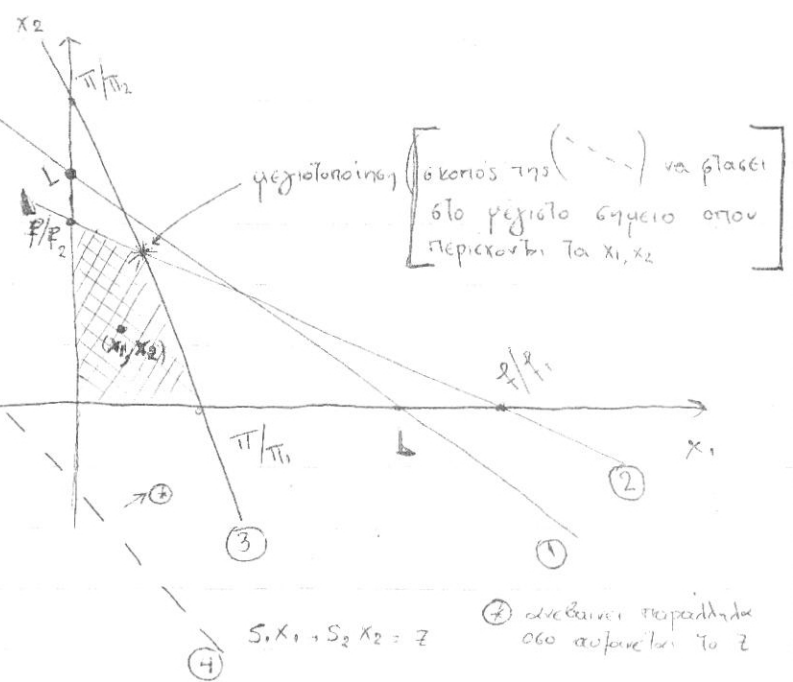 x2
π/π2
L
μεγιστοποίηση
σκοπός της (- - -) να φτάσει
στο μέγιστο σημειο οπου
περιέχονται τα x1, x2
(x1, x2)
π/π1
L
x1
→ *
3
1
2
4
S1 x1 + S2 x2 = z
* ανεβαινει παράλληλα
οσο αυξανεται το z